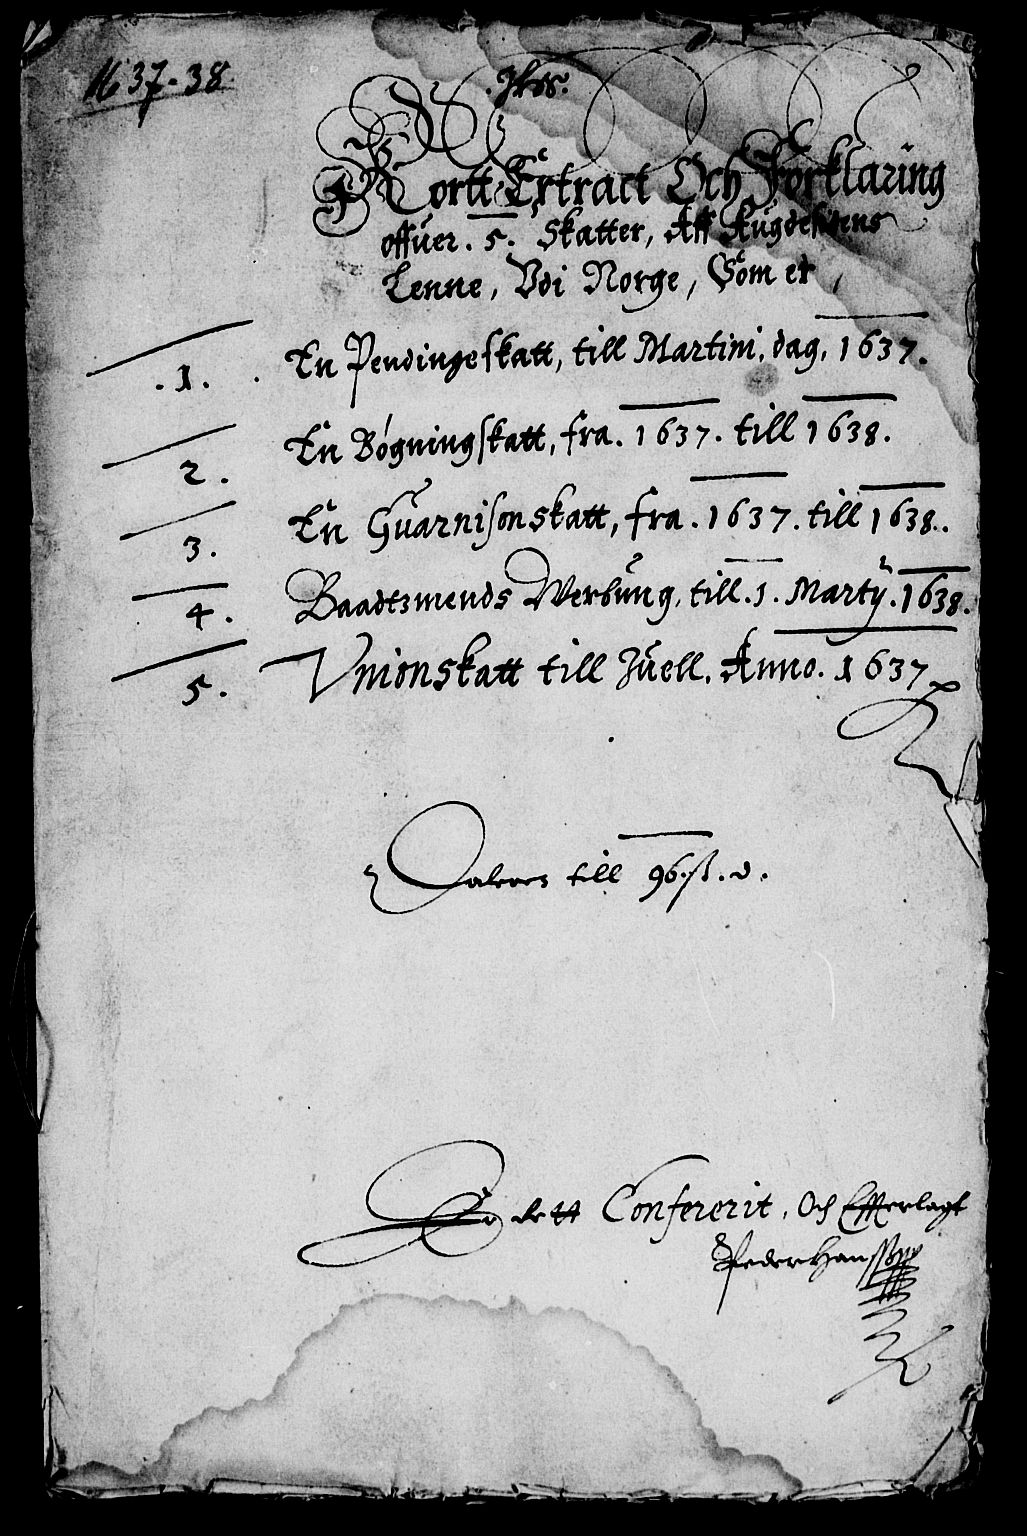 1637-38.
Kortt Extract Och Forklaring
offuer. 5. Skatter, Aff Augdesidens
Lenne, Vdi Norge, Som er,
.1. En Pendingeskatt, till Martini. dag. 1637.
2. En Bøgningskatt, fra. 1637. till 1638.
3. En Guarnisonskatt, fra. 1637. till 1638.
4. Baadtzmends Werbung, till. 1. Martij. 1638.
5. Vnionskatt till Juell. Anno. 1637
Daleren till 96. ß. d.
Er dett Confererit, Och Effterlagt
Peder Hanssen